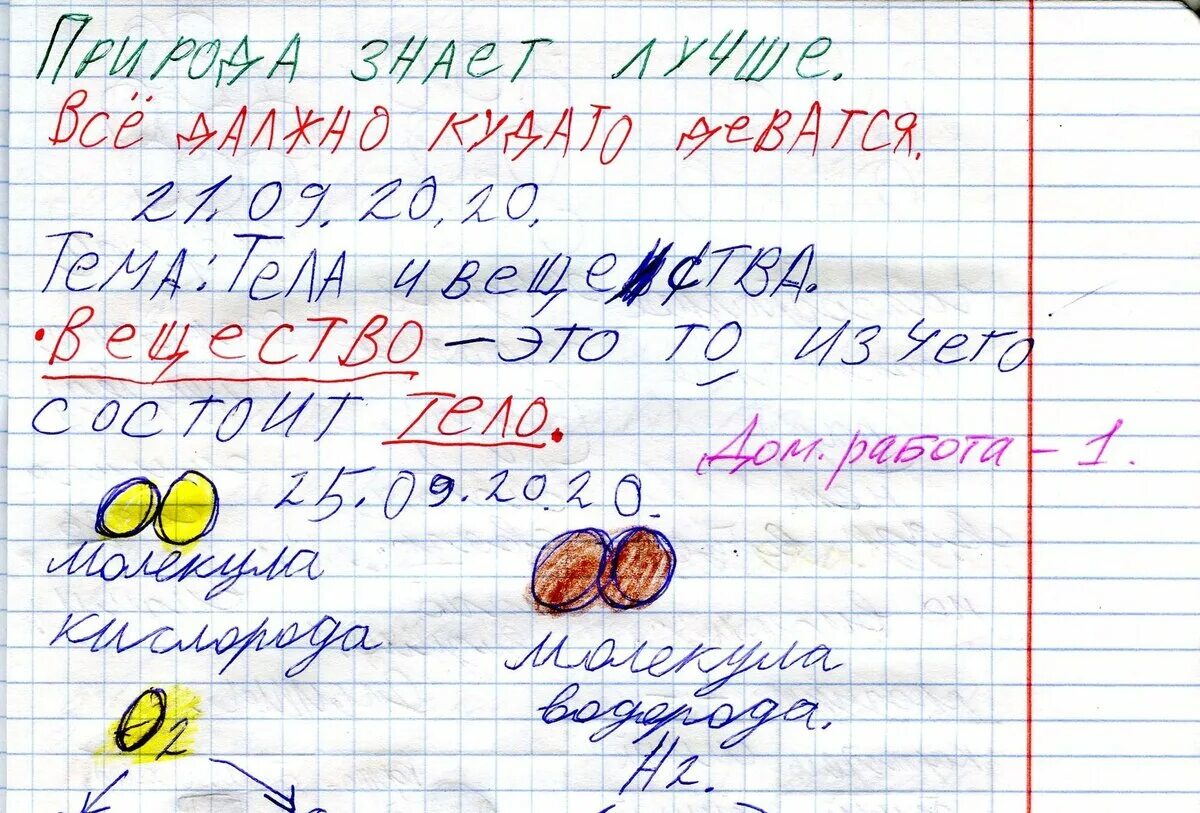 Природа знает лучше.
Всё должно кудато деватся.
21.09.20,20.
Тема: Тела и вещества.
• Вещество – это то из чего
состоит тело.
Дом. работа – 1.
25.09.2020.
молекула
кислорода
Молекула
водорода.
O2
H2.